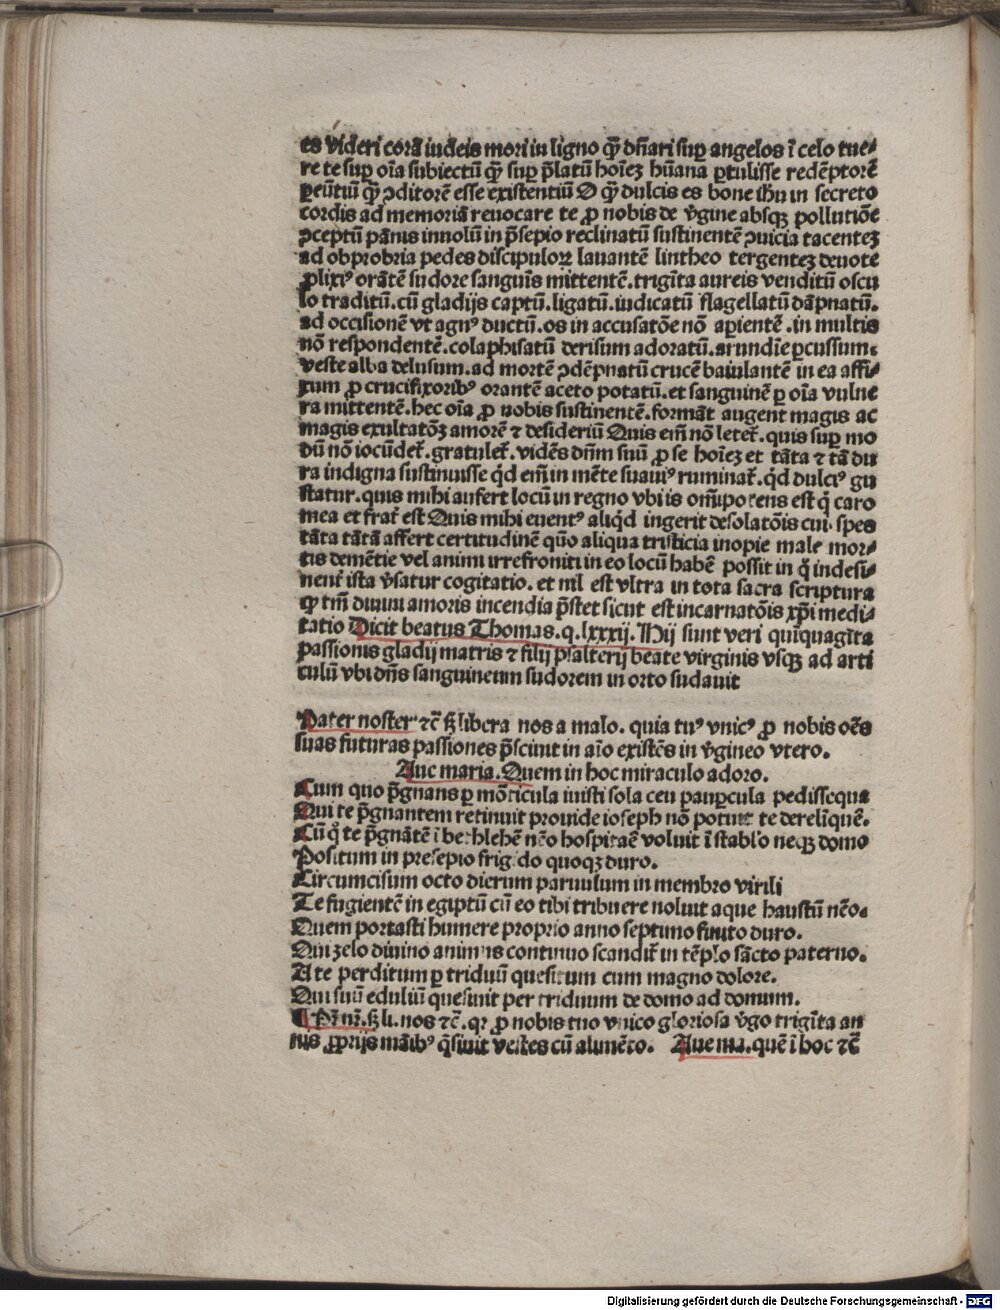 es videri corā iudeis mori in ligno qȝ dn̄ari sup angelos ī celo tue⸗
re te sup oīa subiectū qȝ sup p̄latū hoīeʒ hūana ꝑtulisse redēptorē
ꝑeūtiū qȝ ꝯditorē esse existentiū O qȝ dulcis es bone ihū in secreto
cordis ad memoriā reuocare te ꝓ nobis de v̄gine absqȝ pollutiōe
ꝯceptū pānis inuolū in p̄sepio reclinatū sustinentē ꝯuicia tacenteʒ
ad obprobria pedes discipuloꝝ lauantē lintheo tergenteʒ deuote
ꝓlixiꝰ orātē sudore sanguīs mittentē.trigīta aureis venditū oscu
lo traditū.cū gladijs captū.ligatū.iudicatū flagellatū dāpnatū.
ad occisionē vt agnꝰ ductū.os in accusatōe nō apientē.in multis
nō respondentē.colaphisatū derisum adoratū.arundīe ꝑcussum.
veste alba delusum.ad mortē ꝯdēpnatū crucē baiulantē in ea affi⸗
xum ꝓ crucifixoribꝰ orantē aceto potatū.et sanguinē ꝑ oīa vulne
ra mittentē.hec oīa ꝓ nobis sustinentē.formāt augent magis ac
magis exultatōʒ amorē ⁊ desideriū Quis em̄ nō letet̄.quis sup mo
dū nō iocūdet̄.gratulet̄.vidēs dn̄m suū ꝓ se hoīeʒ et tāta ⁊ tā du
ra indigna sustinuisse qͥd em̄ in mēte suauiꝰ ruminat̄.qͥd dulciꝰ gu
statur.quis mihi aufert locū in regno vbi is om̄ipotens est q̄ caro
mea et frat̄ est Quis mihi euentꝰ aliqͥd ingerit desolatōis cui spes
tāta tātā affert certitudinē quō aliqua tristicia inopie male mor⸗
tis demētie vel animi irrefroniti in eo locū habē possit in q̄ indesi⸗
nent̄ ista v̄satur cogitatio.et nil est vltra in tota sacra scriptura
qͥ tm̄ diuini amoris incendia p̄stet sicut est incarnatōis xp̄i medi⸗
tatio Dicit beatus Thomas.q.lxxxij.Hij sunt veri quiquagīta
passionis gladij matris ⁊ filij psalterij beate virginis vsqȝ ad arti
culū vbi dn̄s sanguineum sudorem in orto sudauit
Pater noster ⁊c̄ sȝ libera nos a malo. quia tuꝰ vnicꝰ ꝓ nobis oēs
suas futuras passiones p̄sciuit in aīo existēs in v̄gineo vtero.
Aue maria.Quem in hoc miraculo adoro.
Cum quo p̄gnans ꝑ mōticula iuisti sola ceu paupcula pedissequa
Qui te p̄gnantem retinuit prouide ioseph nō potuit te derelīquē.
Cū qͦ te p̄gnātē ī bethlehē nēo hospitaē voluit ī stablo neqȝ domo
Positum in presepio frigido quoqȝ duro.
Circumcisum octo dierum paruulum in membro virili
Te fugientē in egiptū cū eo tibi tribuere noluit aque haustū nēo.
Quem portasti humere proprio anno septimo finito duro.
Qui zelo diuino animus continuo scandit̄ in tēplo sācto paterno.
A te perditum ꝑ triduū quesitum cum magno dolore.
Qui suū eduliū quesiuit per triduum de domo ad domum.
¶ Pr̄ nr̄.sȝ li.nos ⁊c̄.qꝛ ꝓ nobis tuo vnico gloriosa v̄go trigīta an
nis ꝓprijs māibꝰ q̄siuit vestes cū alimēto. Aue ma.quē ī hoc ⁊c̄
Digitalisierung gefördert durch die Deutsche Forschungsgemeinschaft - DFG